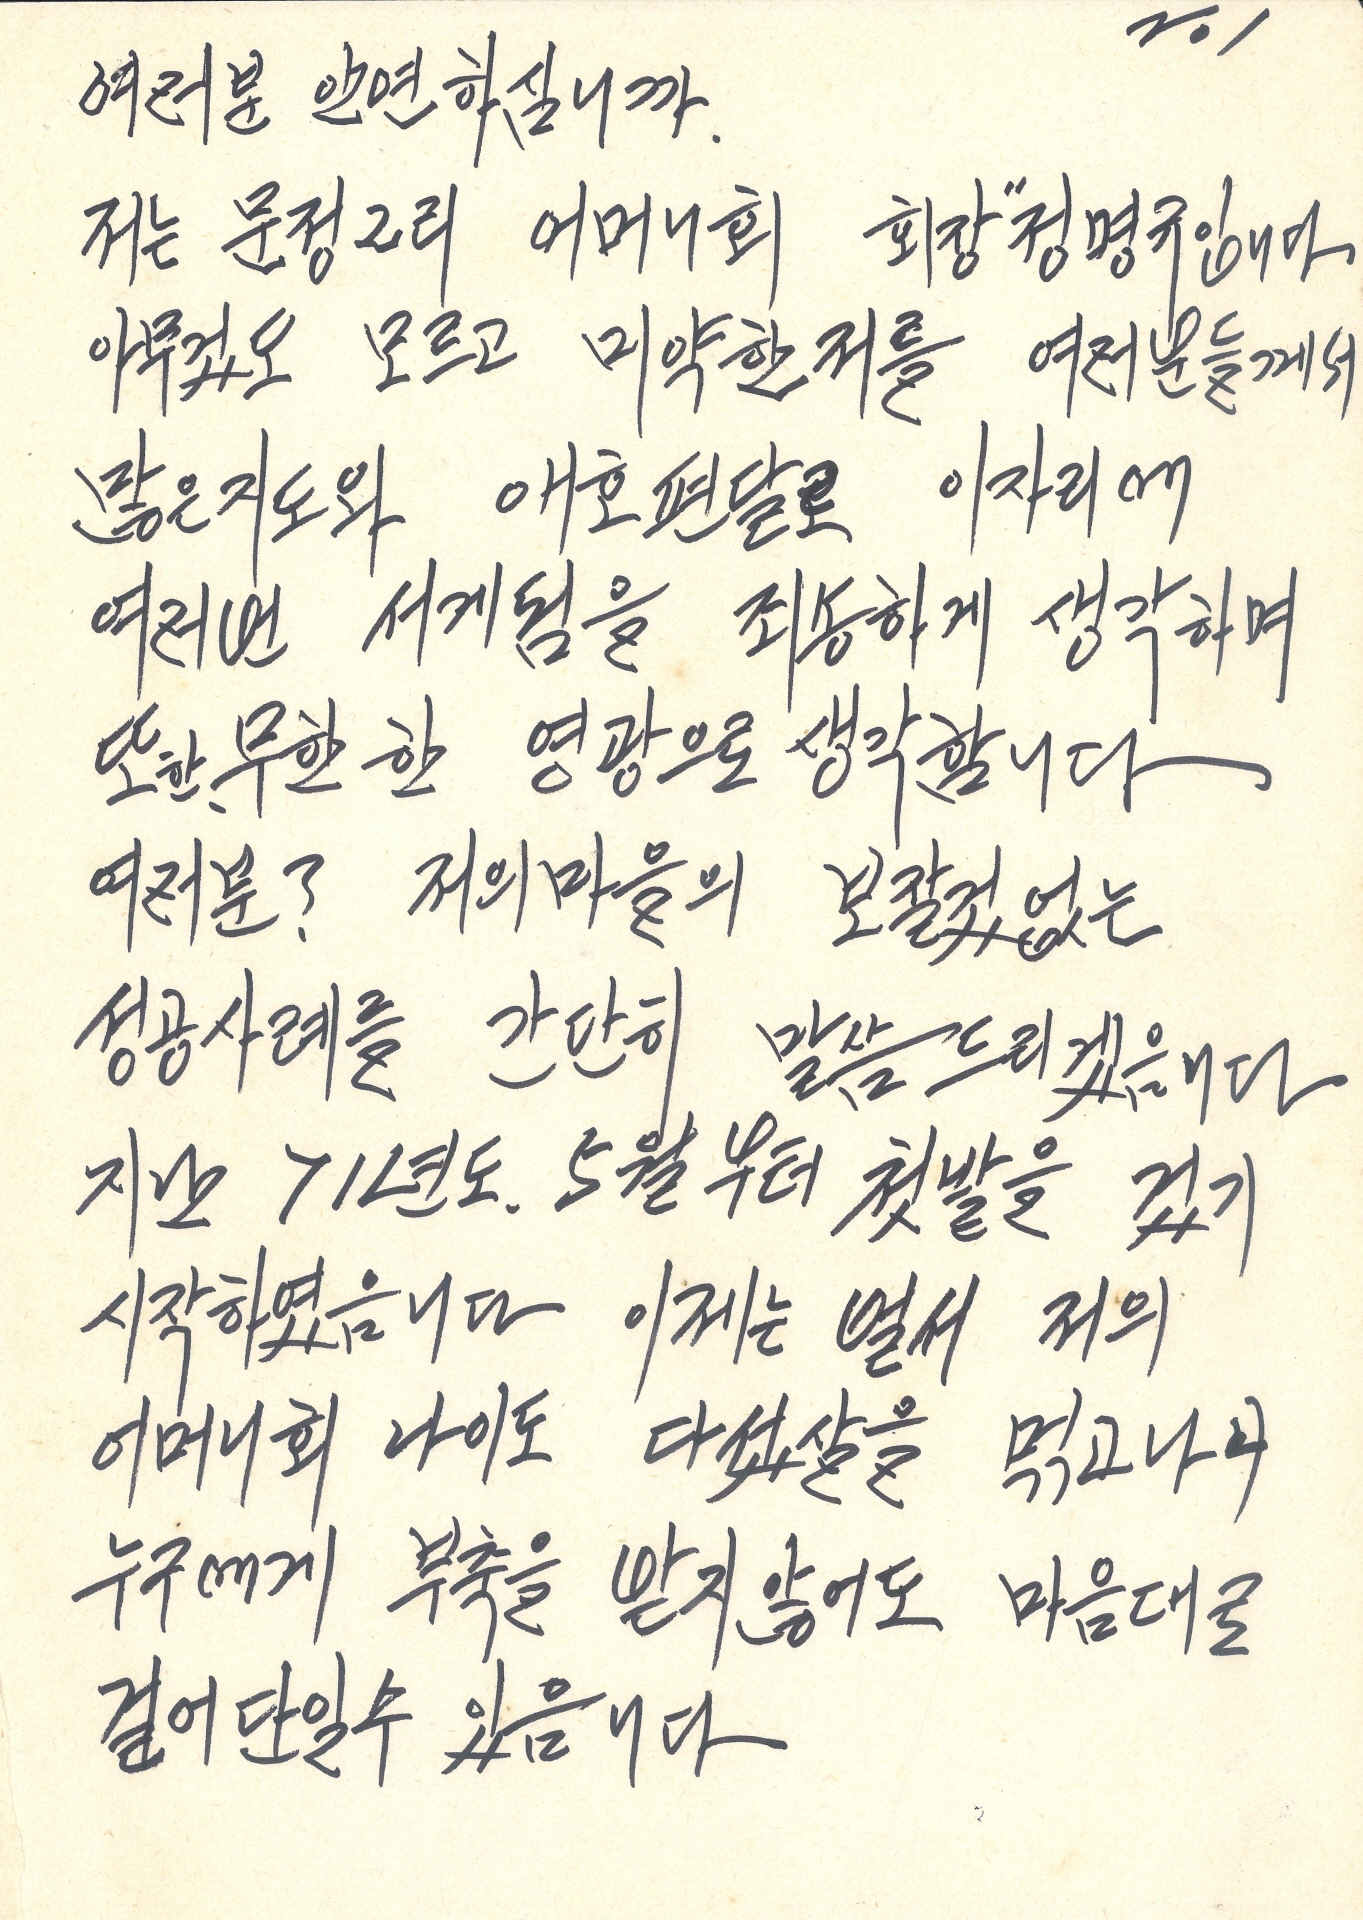 No 1
여러분 안연하십니까.
저는 문정2리 어머니회 회장"정명국입니다
아무겄오 모르고 미약한저를 여러분들께서
많은지도와 애호편달로 이자리에
여러번 서게됨을 죄송하게 생각하며
또한, 무한한 영광으로 생각합니다
여러분? 저의마을의 보잘겄없는
성공사례를 간단히 말씀드리겠음니다
지난 71년도. 5월부터 첫발을 겄기
시작하였음니다 이제는 벌써 저의
어머니회 나이도 다섰살을 먹고나니
누구에게 부축을 받지않어도 마음대로
걸어단일수 있음니다